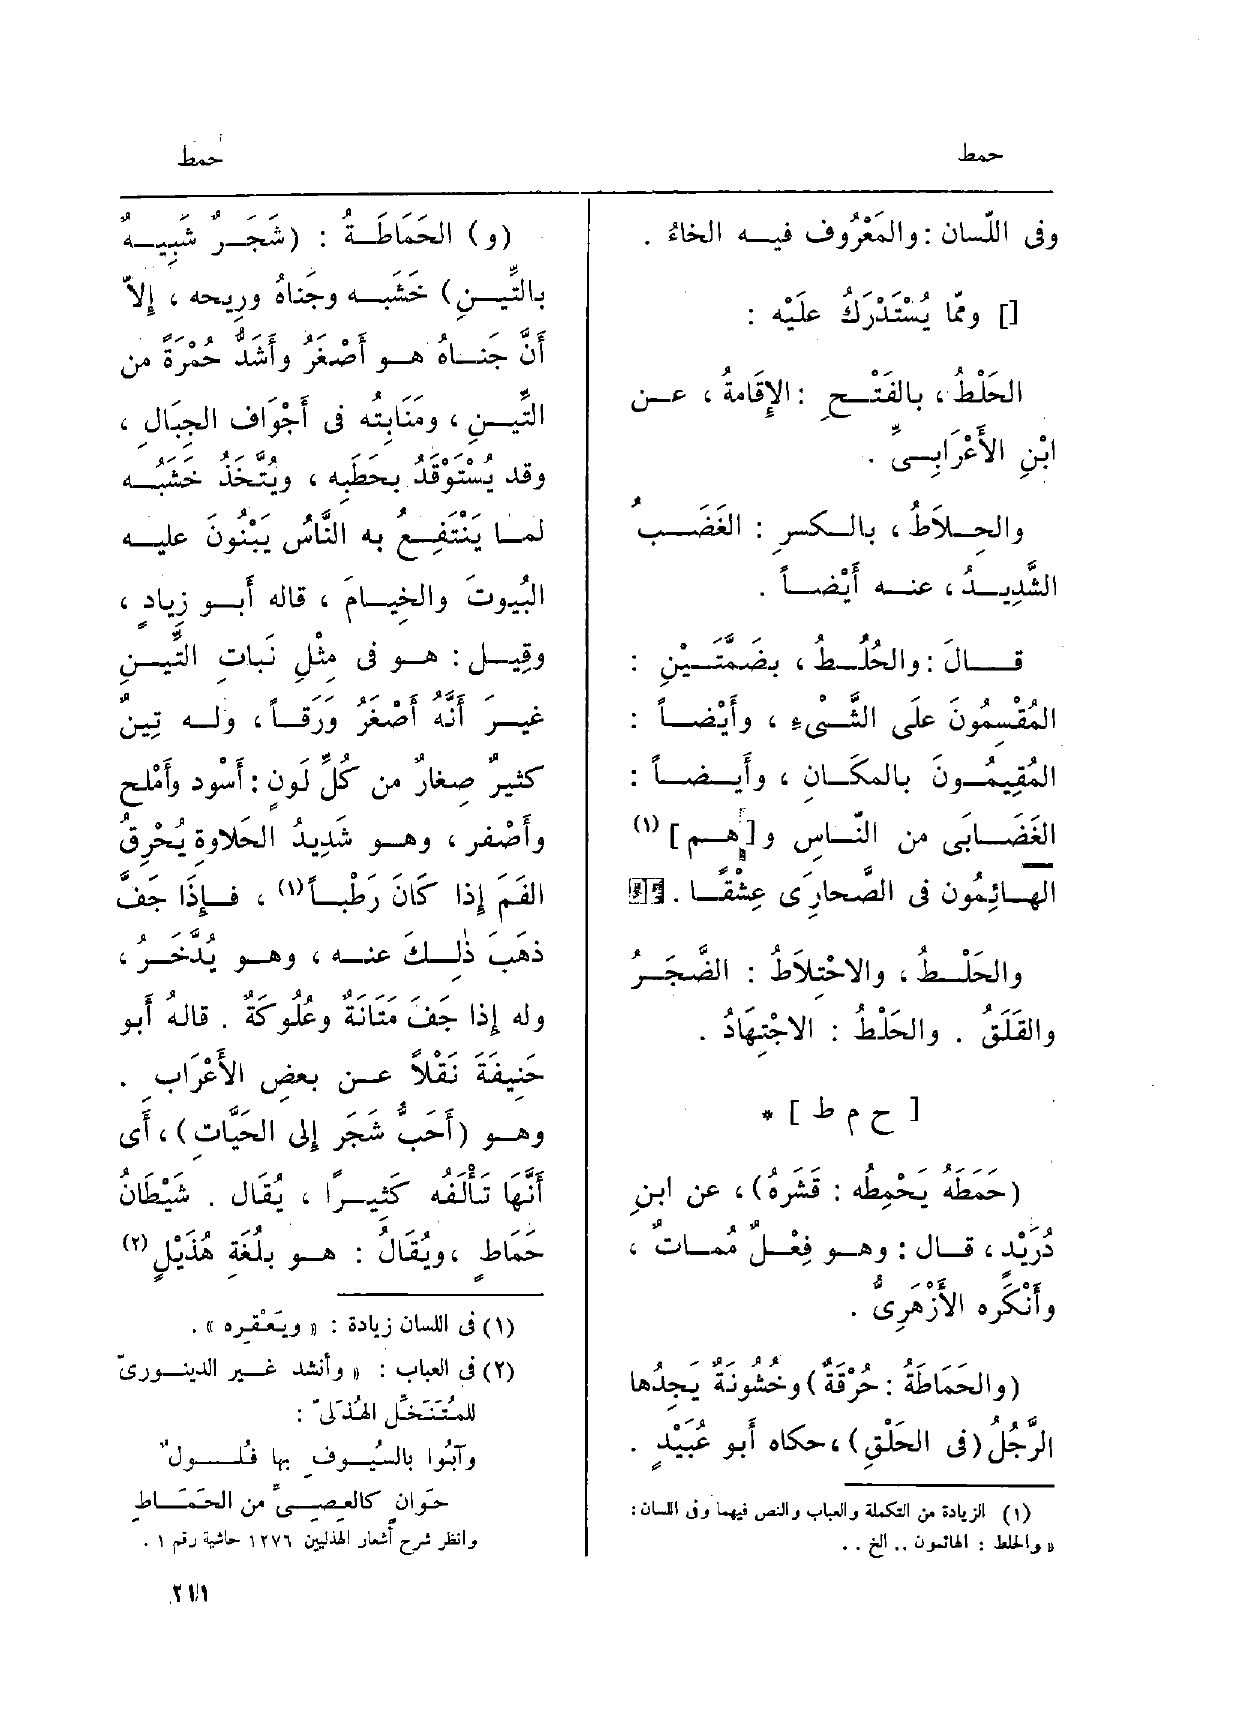 حمط
حمط
وفى اللِّسان : والمَعْرُوف فيـه الخاءُ .
[] وممّا يُسْتَدْرَكُ عَلَيْه :
الحَلْطُ ، بالفَتْـحِ : الإِقَامةُ ، عـن
ابْنِ الأَعْرَابِـىِّ .
والحِـلَاطُ ، بالـكسرِ : الغَضَـبُ
الشَّدِيـدُ ، عنـه أَيْضـاً .
قـالَ : والحُلُـطُ ، بضَمَّتَـيْنِ :
المُقْسِمُونَ علَى الشَّـىْءِ ، وأَيْضـاً :
المُقِيمُـونَ بالمكَـانِ ، وأَيـضـاً :
الغَضَابَى من النّـاسِ و[هـم] (١)
الهـائِمُون فى الصَّحارَِى عِشْقًـا .
والحَلْـطُ ، والاخْتِلَاطُ : الضَّجَـرُ
والقَلَقُ . والحَلْطُ : الاجْتِهَادُ .
[ ح م ط ] *
(حَمَطَهُ يَحْمِطُه : قَشَرَهُ) ، عن ابنِ
دُرَيْدٍ ، قـال : وهـو فِعْـلٌ مُمـاتٌ ،
وأَنْكَرَه الأَزْهَرِىُّ .
(والحَمَاطَةُ : حُرْقَةٌ) وخُشُونَةٌ يَجِدُها
الرَّجُلُ (فى الحَلْقِ) ، حكاه أَبو عُبَيْدٍ .
(١) الزيادة من التكملة والعباب والنص فيهما وفى اللسان :
« والحلط : الهائمون .. الخ . .
(و) الحَمَاطَـةُ : (شَجَـرٌ شَبِيـهٌ
بالتِّيـنِ) خَشَبُـه وجَناهُ ورِيحه ، إِلاّ
أَنَّ جَنـاهُ هـو أَصْغَرُ وأَشَدُّ حُمْرَةً من
التِّيـنِ ، ومَنَابِتُه فى أَجْوَافِ الجِبَالِ ،
وقد يُسْتَوْقَدُ بحَطَبِه ، ويُتَّخَذُ خَشَبُـه
لمـا يَنْتَفِـعُ به النَّاسُ يَبْنُونَ عليـه
البُيوتَ والخِيـامَ ، قاله أَبـو زِيادٍ ،
وقِيـل : هـو فى مِثْلِ نَباتِ التِّيـنِ
غيـرَ أَنَّهُ أَصْغَرُ وَرَقـاً ، ولـه تِينٌ
كثيرٌ صِغارٌ من كُلِّ لَونٍ : أَسْود وأَمْلح
وأَصْفر ، وهـو شَدِيدُ الحَلاوةِ يُحْرِقُ
الفَمَ إِذا كَانَ رَطْبـاً (١) ، فـإِذَا جَفَّ
ذهَبَ ذٰلِـكَ عنـه ، وهـو يُدَّخَـرُ ،
وله إِذا جَفَّ مَتَانَةٌ وعُلُوكَةٌ . قالهُ أَبو
حَنِيفَةَ نَقْلاً عـن بعضِ الأَعْرَابِ .
وهـو (أَحَبُّ شَجَرٍ إِلى الحَيَّاتِ) ، أَى
أَنَّهَا تَأْلَفُه كَثِيـرًا ، يُقَال . شَيْطَانُ
حَمَاطٍ ، ويُقَالُ : هـو بلُغَةِ هُذَيْلٍ (٢)
(١) فى اللسان زيادة : « ويَعْقِره » .
(٢) فى العباب : « وأنشد غـير الدينـورىّ
للمُتَنَخِّل الهُذَلىّ :
وآبُوا بالسُّيوفِ بها فُلـولٌ
حَوانٍ كالعِصِـىِّ من الحَمَـاطِ
وانظر شرح أشعار الهذليين ١٢٧٦ حاشية رقم ١ .
٢١١